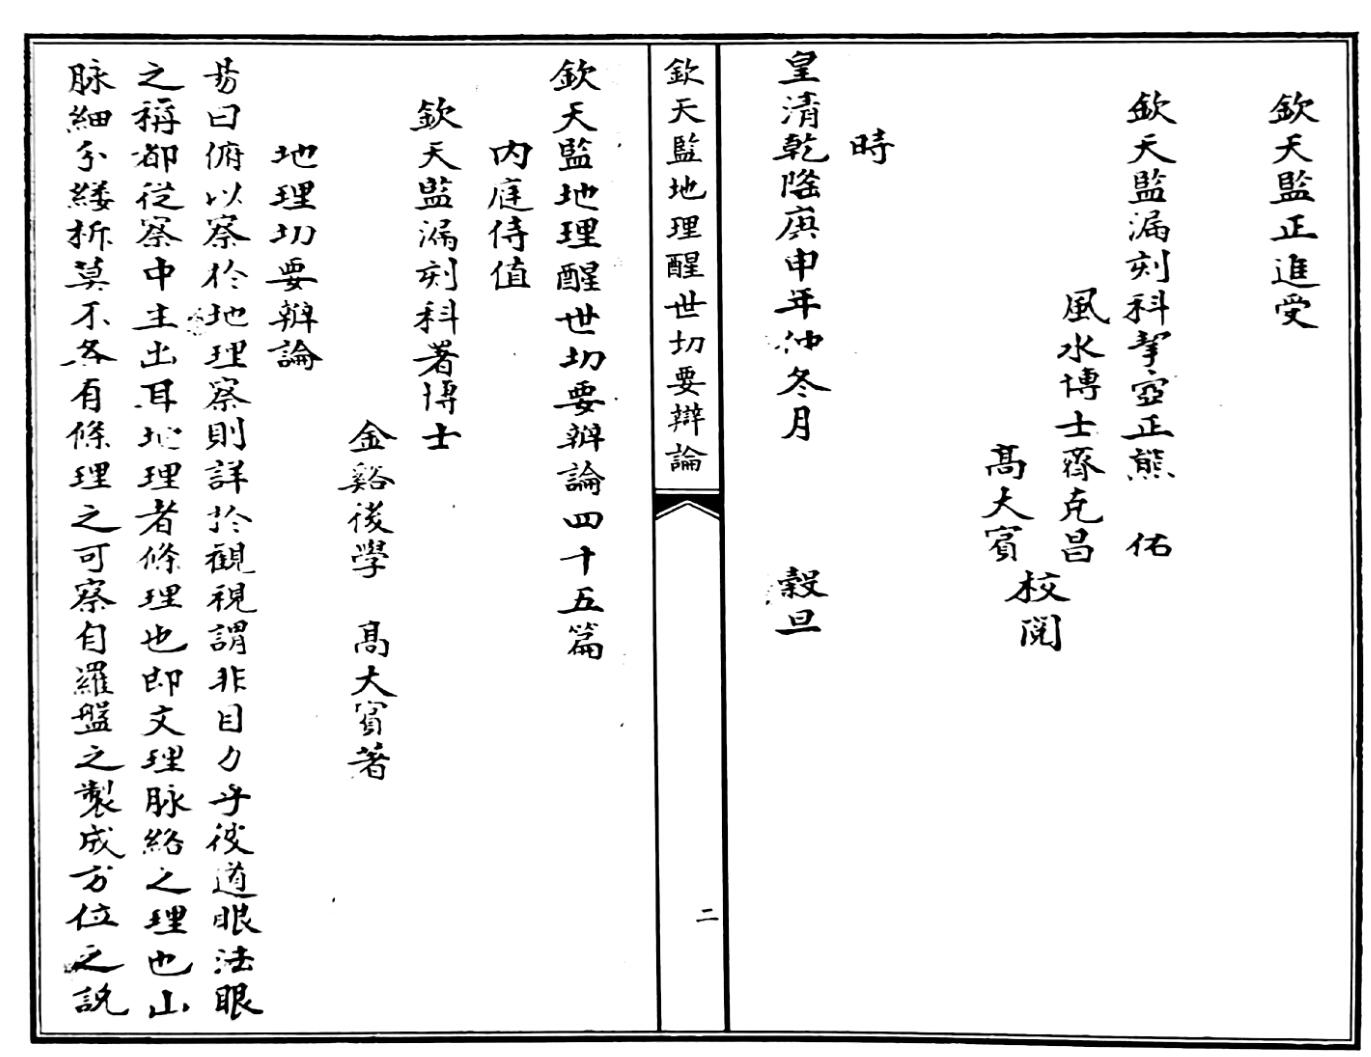 欽天監正進受
欽天監漏刻科挈壺正熊　佑
風水博士齊克昌
高大賓
校閱
時
皇清乾隆庚申年仲冬月　穀旦
欽天監地理醒世切要辯論
二
欽天監地理醒世切要辦論四十五篇
内庭侍值
欽天監漏刻科著博士
金谿後學　高大賓著
地理切要辦論
昜曰俯以察於地理察則詳於觀視謂非目力乎彼道眼法眼
之稱都從察中主出耳地理者條理也即文理脉絡之理也山
脉細分縷析莫不各有條理之可察自羅盤之製成方位之說